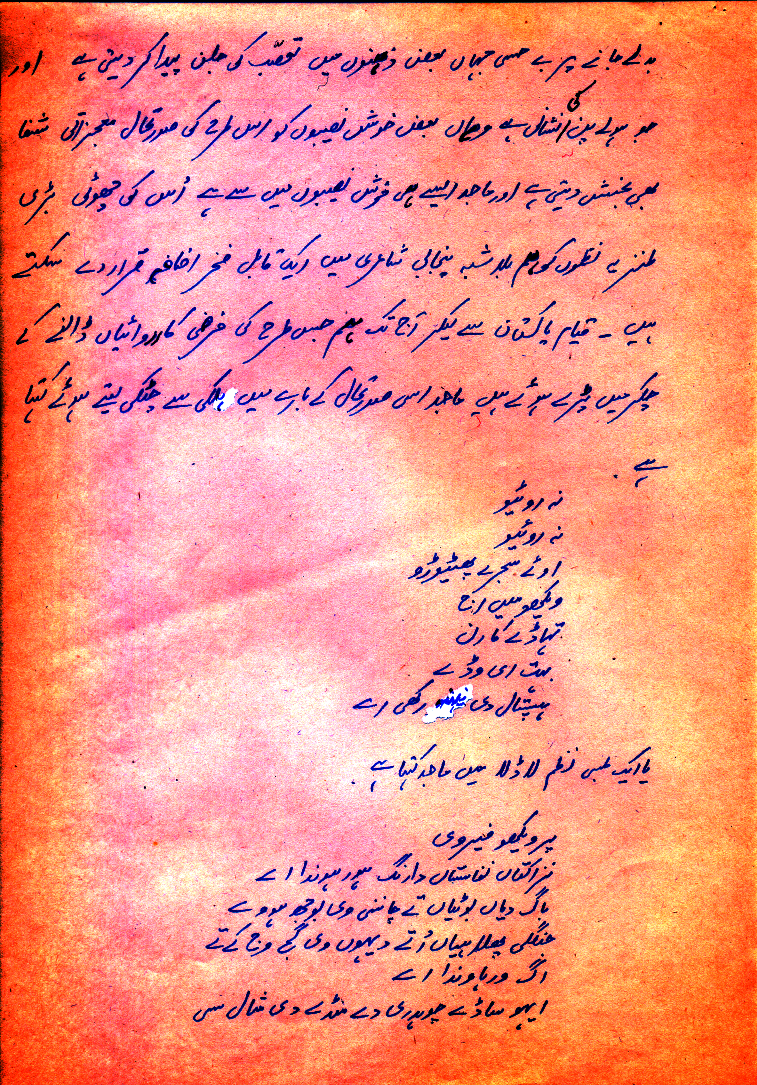 بدلے جانے پر بے حسی جہاں بعض ذہنوں میں تعصّب کی جلن پیدا کر دیتی ہے اور
جو ہولے پن کی انتقال ہے وہاں بعض خوش نصیبوں کو اس طرح کی صورتحال معجزاتی شفا
بھی بخش دیتی ہے اور ماجد ایسے ہی خوش نصیبوں میں سے ہے اُس کی چھوٹی بڑی
طنزیہ نظموں کو ہم بلاشبہ پنجابی شاعری میں ایک قابل فخر اضافہ قرار دے سکتے
ہیں ۔ قیام پاکستان سے لیکر آج تک ہم جس طرح کی فرضی کارروائیاں ڈالنے کے
چکر میں پڑے ہوئے ہیں ماجد اسی صورتحال کے بارے میں ہلکی سے چٹکی لیتے ہوئے کہتا
ہے
نہ روئیو
نہ روئیو
اوئے سجرے پھٹیوڑو
ویکھو میں اج
تہاڈے کارن
بہت ای وڈے
ہسپتال دی نیہنہ رکھی اے
یا ایک لمبی نظم لاڈلا میں ماجد کہتا ہے
پر ویکھو فیر وی
نزاکتاں نفاستاں دا رنگ ہور ہوندا اے
باگ دیاں بوٹیاں تے چاننی وی بوجھ ہووے
جنگلی پھلاہیاں اُتے دیہوں وی گج وج کے تے
اگ ورہاوندا اے
ایہو ساڈے چوہدری دے منڈے دی مثال سی